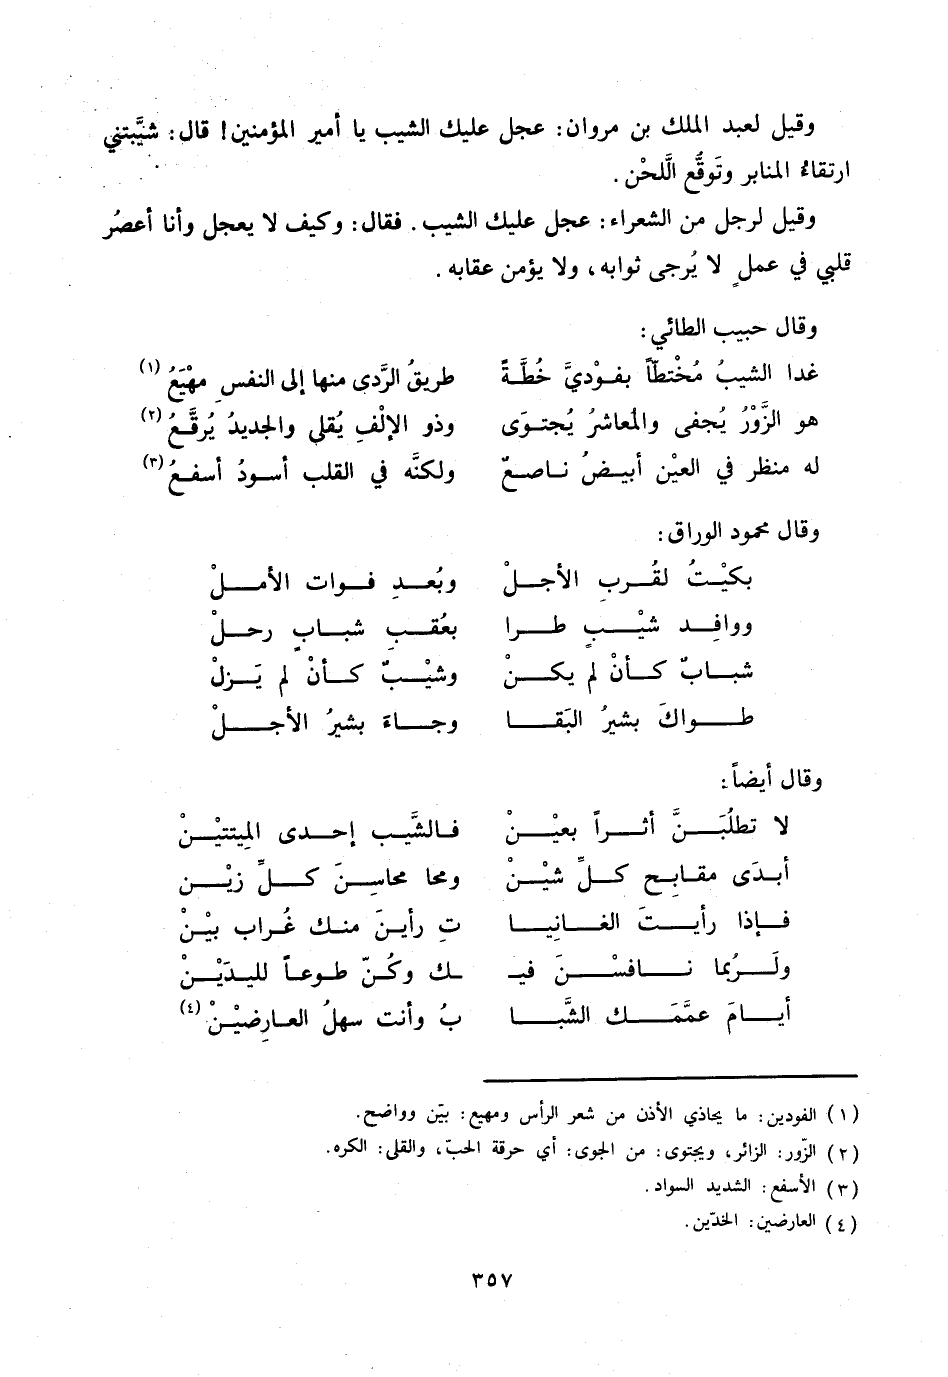 وقيل لعبد الملك بن مروان: عجل عليك الشيب يا أمير المؤمنين! قال: شيَّبتني
ارتقاءُ المنابر وتَوقُّع الَّلحْن.
وقيل لرجل من الشعراء: عجل عليك الشيب. فقال: وكيف لا يعجل وأنا أعصُر
قلبي في عملٍ لا يُرجى ثوابه، ولا يؤمن عقابه.
وقال حبيب الطائي:
غدا الشيبُ مُخْتطّاً بفوْديَّ خُطَّةً طريقُ الرَّدى منها إلى النفسِ مهْيَعُ (١)
هو الزَّوْرُ يُجفى والمُعاشرُ يُجتوَى وذو الإلْفِ يُقلى والجديدُ يُرقَّعُ (٢)
له منظر في العيْن أبيضُ ناصعٌ ولكنَّه في القلب أسودُ أسفعُ (٣)
وقال محمود الوراق:
بكيْتُ لقُربِ الأجلْ وبُعدِ فوات الأملْ
ووافِد شيْبٍ طرا بعُقبِ شبابٍ رحلْ
شبابٌ كأنْ لم يكنْ وشيْبٌ كأنْ لم يَزلْ
طواكَ بشيرُ البَقا وجاءَ بشيرُ الأجلْ
وقال أيضاً:
لا تطلُبَنَّ أثراً بعيْنْ فالشَّيب إحدى المِيتتيْنْ
أبدَى مقابح كلِّ شيْنْ ومحا محاسِنَ كلِّ زيْن
فإذا رأيتَ الغانِيا تِ رأينَ منك غُراب بيْنْ
ولَرُبما نافسْنَ فيـ ـك وكُنّ طوعاً لليدَيْنْ
أيامَ عمَّمَك الشَّبا بُ وأنت سهلُ العارِضيْنْ (٤)
(١) الفودين: ما يحاذي الأذن من شعر الرأس ومهيع: بيّن وواضح.
(٢) الزّور: الزائر، ويجتوى: من الجوى: أي حرقة الحبّ، والقلى: الكره.
(٣) الأسفع: الشديد السواد.
(٤) العارضين: الخدّين.
٣٥٧